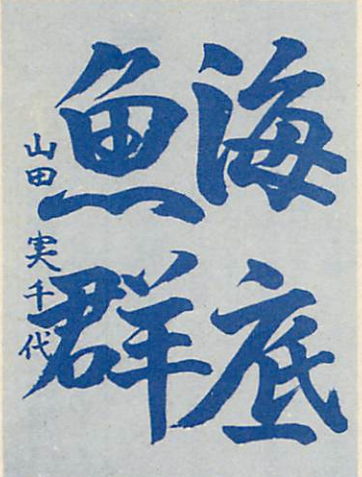 海底
魚群
山田実千代